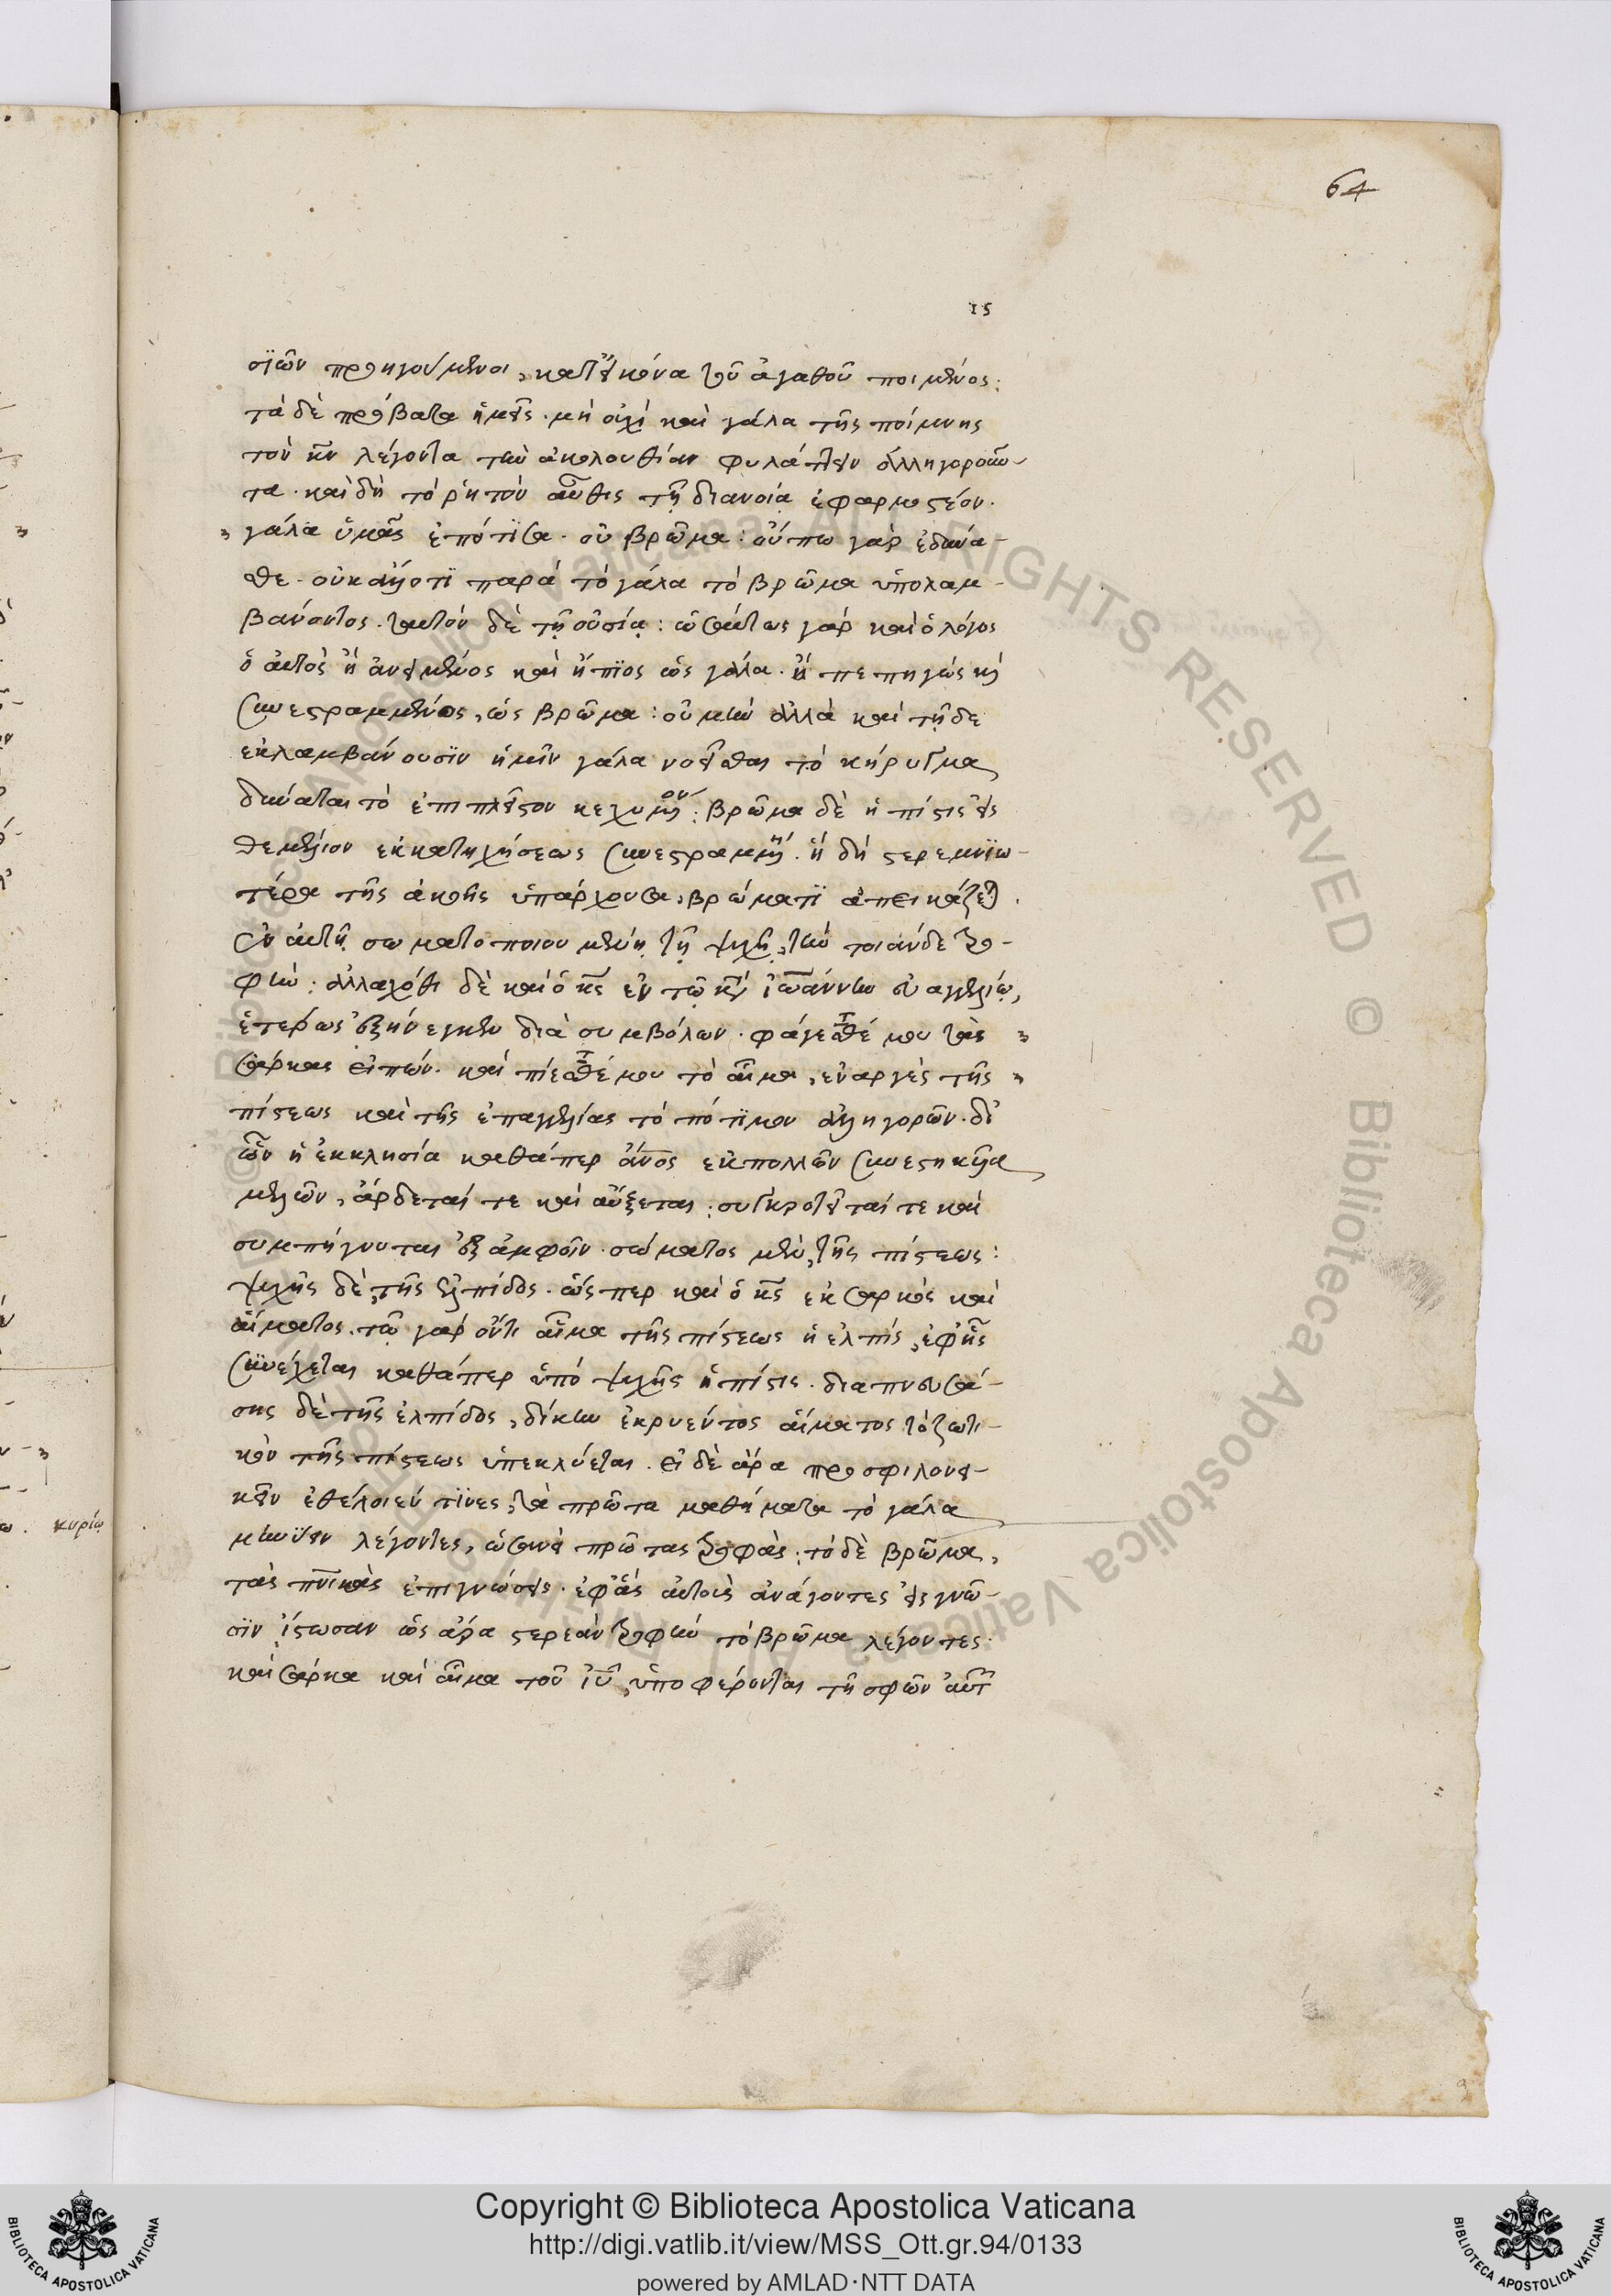 64
15
σϊῶν προηγούμενοι, κατ' εἰκόνα τοῦ ἀγαθοῦ ποιμένος:
τὰ δὲ πρόβατα ἡμεῖς. μὴ οὐχὶ καὶ γάλα τῆς ποίμνης
τὸν κν λέγοντα τὴν ἀκολουθίαν φυλάττειν ἀλληγοροῦν-
τα. καὶ δὴ τὸ ῥητὸν αὖθις τῇ διανοίᾳ ἐφαρμοστέον.
γάλα ὑμᾶς ἐπότϊσα. οὐ βρῶμα: οὔπω γὰρ ἐδύνα-
σθε. οὐκ ἀλλότϊ παρὰ τὸ γάλα τὸ βρῶμα ὑπολαμ-
βάνοντος. ταυτὸν δὲ τῇ οὐσίᾳ: ὡσαύτως γὰρ καὶ ὁ λόγος
ὁ αὐτὸς ἢ ἀνειμένος καὶ ἤπϊος ὡς γάλα. ἢ πεπηγὼς κὶ
συνεστραμμένος, ὡς βρῶμα: οὐ μὴν ἀλλὰ καὶ τῇδε
ἐκλαμβάνουσϊν ἡμῖν γάλα νοεῖσθαι τὸ κήρυγμα
δύναται τὸ ἐπιπλεῖστον κεχυμένον: βρῶμα δὲ ἡ πίστις εἰς
θεμέλιον ἐκ κατηχήσεως συνεστραμμένη. ἡ δὴ στερεμνϊω-
τέρα τῆς ἀκοῆς ὑπάρχουσα, βρώματϊ ἀπεικάζεται.
ἐν αὐτῇ σωματοποιουμένη τῇ ψυχῇ, τὴν τοιάνδε τρο-
φήν: ἀλλαχόθι δὲ καὶ ὁ κς ἐν τῷ κατὰ ἰωάννην εὐαγγελίῳ,
ἑτέρως ἐξήνεγκεν διὰ συμβόλων. φάγεσθέ μου τὰς
σάρκας εἰπών. καὶ πίεσθέ μου τὸ αἷμα, ἐναργὲς τῆς
πίστεως καὶ τῆς ἐπαγγελίας τὸ πότϊμον ἀλληγορῶν. δι'
ὧν ἡ ἐκκλησία καθάπερ ἄνος ἐκ πολλῶν συνεστηκυῖα
μελῶν, ἄρδεταί τε καὶ αὔξεται: συγκροτεῖταί τε καὶ
συμπήγνυται ἐξ ἀμφοῖν. σώματος μὲν, τῆς πίστεως:
ψυχῆς δὲ, τῆς ἐλπίδος. ὥσπερ καὶ ὁ κς ἐκ σαρκὸς καὶ
αἵματος. τῷ γὰρ ὄντι αἷμα τῆς πίστεως ἡ ἐλπὶς, ἐφ' ἧς
συνέχεται καθάπερ ὑπὸ ψυχῆς ἡ πίστις. διαπνευσά-
σης δὲ τῆς ἐλπίδος, δίκην ἐκρυέντος αἵματος τὸ ζωτι-
κὸν τῆς πίστεως ὑπεκλύεται. εἰ δὲ ἄρα προσφιλονει-
κεῖν ἐθέλοιέν τϊνες, τὰ πρῶτα μαθήματα τὸ γάλα
μηνύειν λέγοντες, ὡσανεὶ πρώτας τροφάς: τὸ δὲ βρῶμα,
τὰς πνικὰς ἐπιγνώσεις. ἐφ' ἃς αὐτοὺς ἀνάγοντες εἰς γνῶ-
σϊν, ἴστωσαν ὡς ἄρα στερεὰν τροφὴν τὸ βρῶμα λέγοντες.
καὶ σάρκα καὶ αἷμα τοῦ ἰυ, ὑποφέρονται τῇ σφῶν αὐτ
κυρίῳ
Copyright © Biblioteca Apostolica Vaticana
http://digi.vatlib.it/view/MSS_Ott.gr.94/0133
powered by AMLAD·NTT DATA